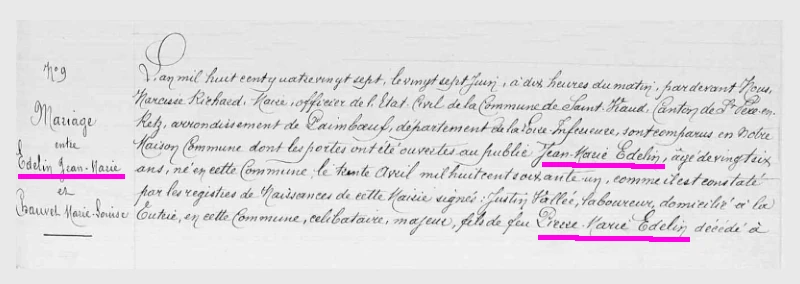 N° 9
Mariage
entre
Edelin Jean-Marie
et
Bauvet Marie-Louise
L'an mil huit cent quatre vingt sept, le vingt sept Juin, à dix heures du matin, par devant Nous,
Narcisse Richard, Marie, officier de l'Etat Civil de la Commune de Saint-Viaud, Canton de St Père-en-
Retz, arrondissement de Paimbœuf, département de la Loire Inférieure, sont comparus en notre
Maison Commune dont les portes ont été ouvertes au public Jean-Marie Edelin, âgé de vingt six
ans, né en cette Commune, le trente Avril mil huit cent soixante un, comme il est constaté
par les registres de Naissances de cette Mairie signés: Justin Vallée, laboureur, domicilié à la
en cette Commune, célibataire, majeur, fils de feu Pierre-Marie Edelin décédé à